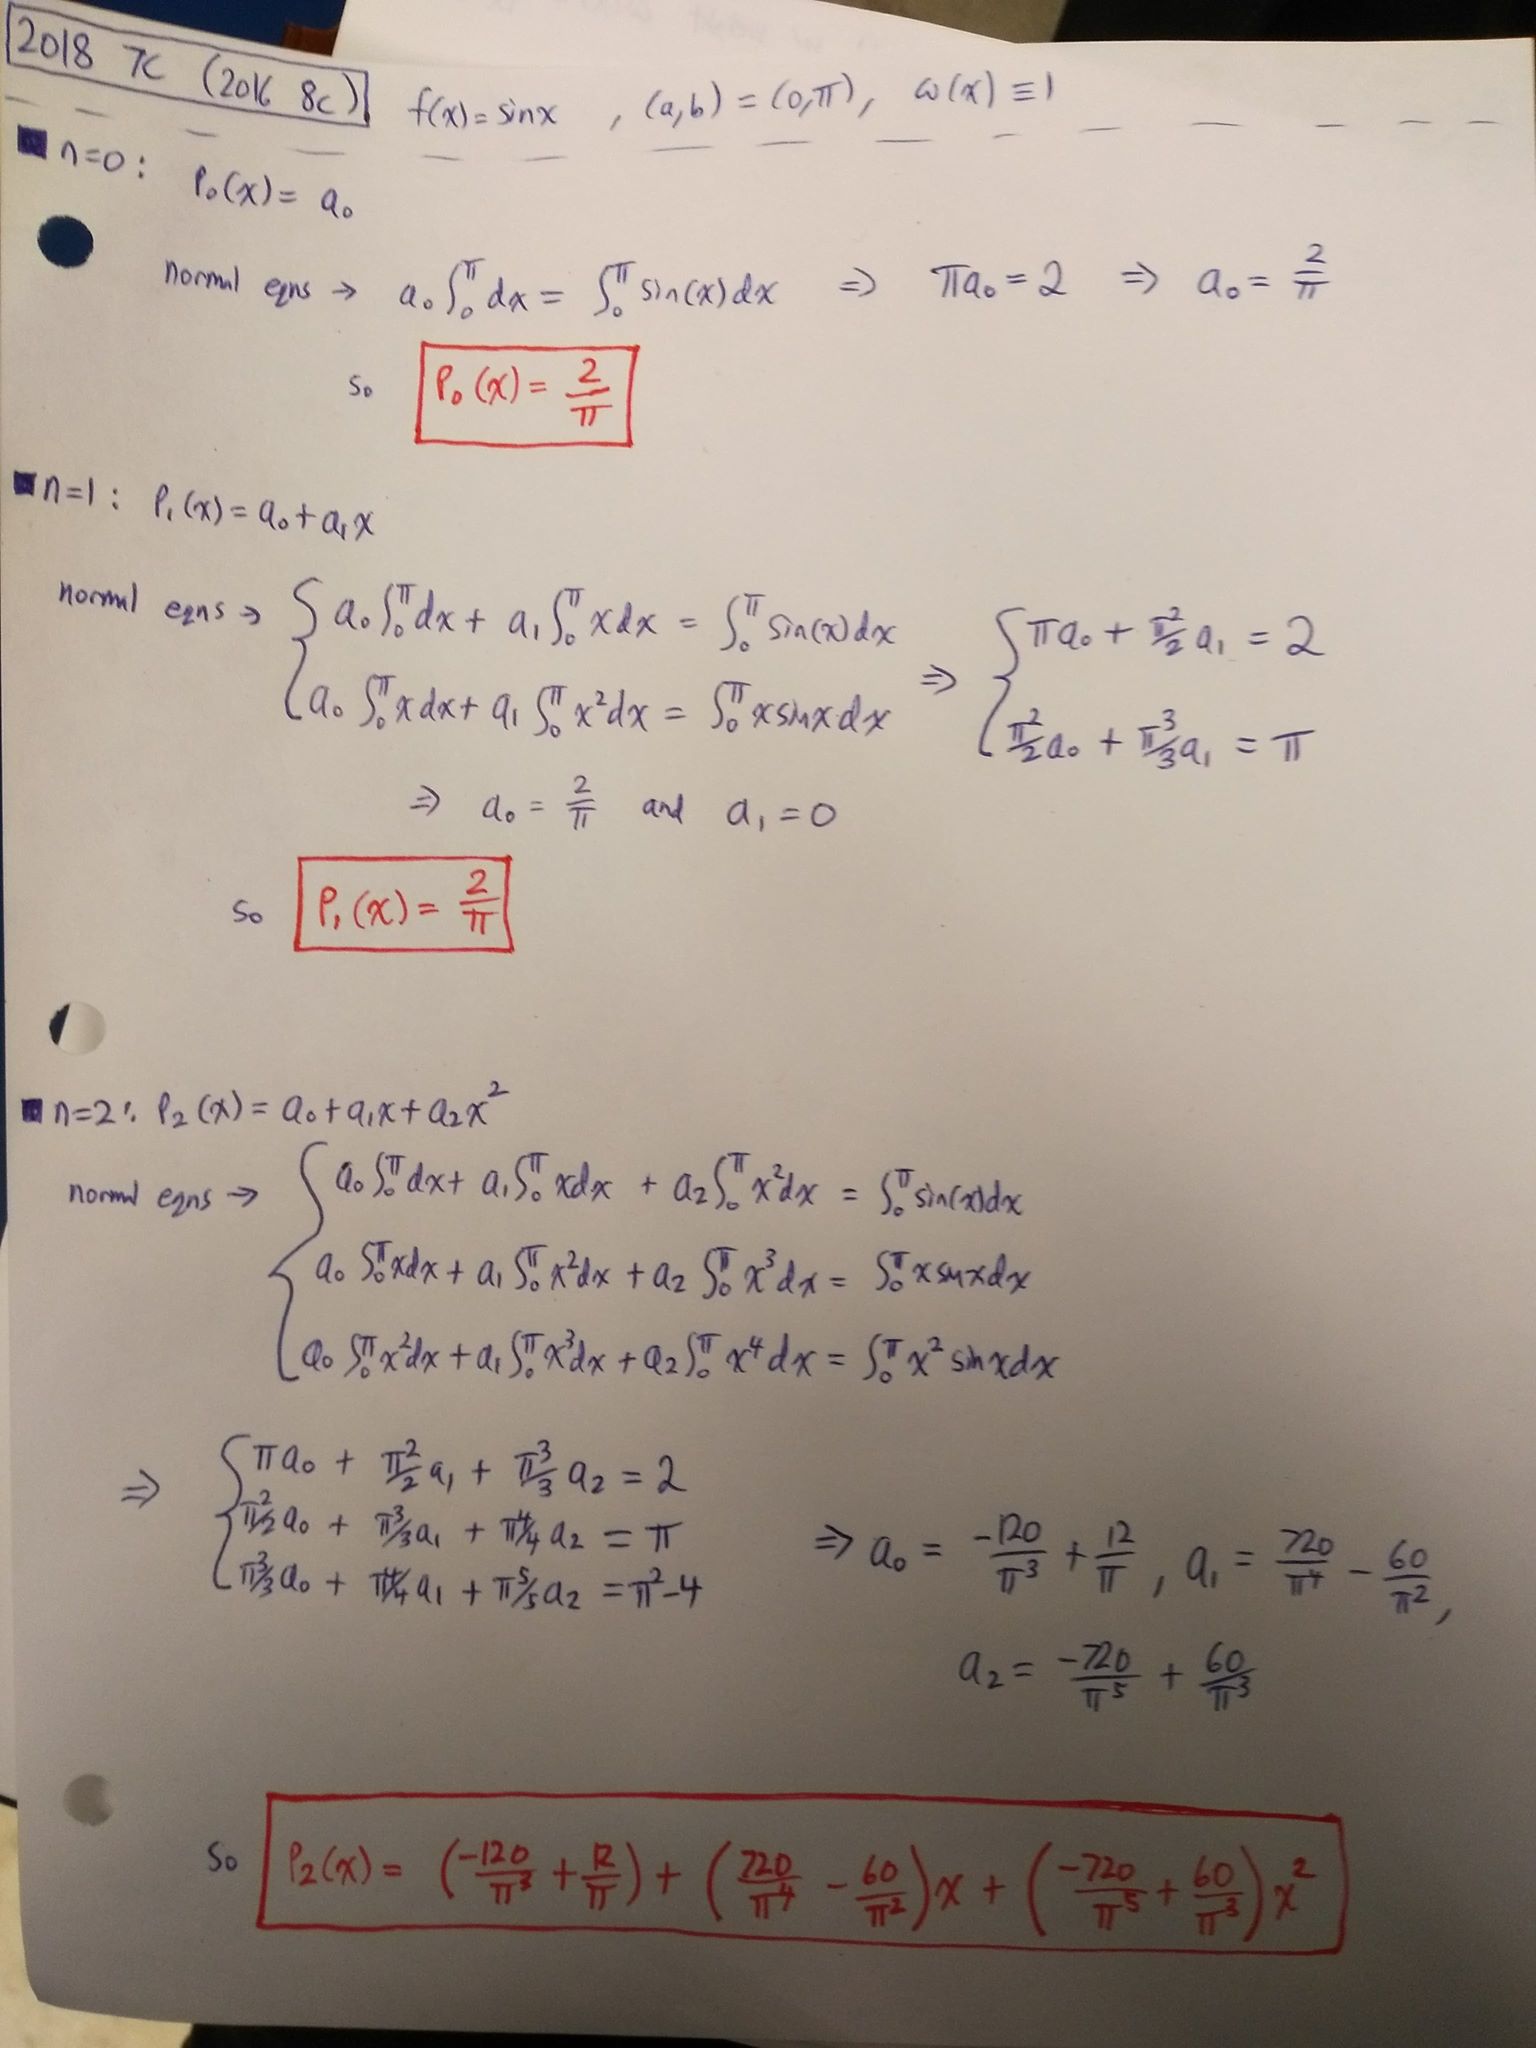 2018 7c (2016 8c) f(x) = sinx , (a,b) = (0,π), ω(x) ≡ 1
n=0: P₀(x) = a₀
normal eqns → a₀∫₀^π dx = ∫₀^π sin(x)dx ⇒ πa₀ = 2 ⇒ a₀ = 2/π
so P₀(x) = 2/π
n=1: P₁(x) = a₀ + a₁x
normal eqns → { a₀∫₀^π dx + a₁∫₀^π xdx = ∫₀^π sin(x)dx
a₀∫₀^π xdx + a₁∫₀^π x²dx = ∫₀^π xsinxdx
⇒ { πa₀ + π²/2 a₁ = 2
π²/2 a₀ + π³/3 a₁ = π
⇒ a₀ = 2/π and a₁ = 0
so P₁(x) = 2/π
n=2: P₂(x) = a₀ + a₁x + a₂x²
normal eqns → { a₀∫₀^π dx + a₁∫₀^π xdx + a₂∫₀^π x²dx = ∫₀^π sin(x)dx
a₀∫₀^π xdx + a₁∫₀^π x²dx + a₂∫₀^π x³dx = ∫₀^π xsinxdx
a₀∫₀^π x²dx + a₁∫₀^π x³dx + a₂∫₀^π x⁴dx = ∫₀^π x² sinxdx
⇒ { πa₀ + π²/2 a₁ + π³/3 a₂ = 2
π²/2 a₀ + π³/3 a₁ + π⁴/4 a₂ = π
π³/3 a₀ + π⁴/4 a₁ + π⁵/5 a₂ = π²-4
⇒ a₀ = -120/π³ + 12/π , a₁ = 720/π⁴ - 60/π² ,
a₂ = -720/π⁵ + 60/π³
so P₂(x) = (-120/π³ + 12/π) + (720/π⁴ - 60/π²)x + (-720/π⁵ + 60/π³)x²